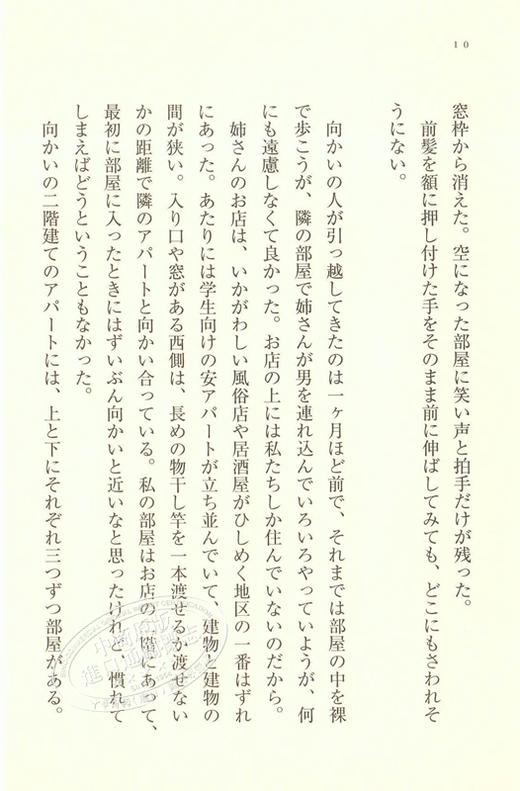 10
窓枠から消えた。空になった部屋に笑い声と拍手だけが残った。
前髪を額に押し付けた手をそのまま前に伸ばしてみても、どこにもさわれそ
うにない。
向かいの人が引っ越してきたのは一ヶ月ほど前で、それまでは部屋の中を裸
で歩こうが、隣の部屋で姉さんが男を連れ込んでいろいろやっていようが、何
にも遠慮しなくて良かった。お店の上には私たちしか住んでいないのだから。
姉さんのお店は、いかがわしい風俗店や居酒屋がひしめく地区の一番はずれ
にあった。あたりには学生向けの安アパートが立ち並んでいて、建物と建物の
間が狭い。入り口や窓がある西側は、長めの物干し竿を一本渡せるか渡せない
かの距離で隣のアパートと向かい合っている。私の部屋はお店の二階にあって、
最初に部屋に入ったときにはずいぶん向かいと近いなと思ったけれど、慣れて
しまえばどうということもなかった。
向かいの二階建てのアパートには、上と下にそれぞれ三つずつ部屋がある。